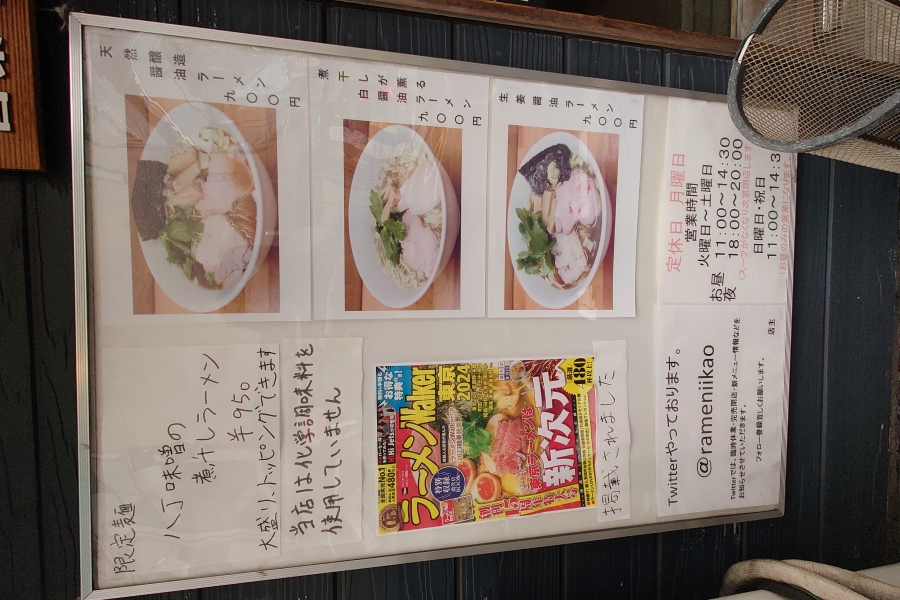 天然醸造
醤油ラーメン
九〇〇円
煮干しが薫る
白醤油ラーメン
九〇〇円
生姜醤油ラーメン
九〇〇円
定休日 月曜日
営業時間
火曜日〜土曜日
お昼 11:00〜14:30
夜 18:00〜20:00
(スープがなくなり次第閉店します
日曜日・祝日
11:00〜14:3
限定麺
八丁味噌の
煮干しラーメン
¥950
大盛り、トッピングできます
当店は化学調味料を
使用していません
お得な
特典
ラーメンWalker
東京
2024
新次元
掲載されました
Twitterやっております。
@rameniikao
Twitterでは、臨時休業・完売閉店・新メニュー情報などを
お知らせさせていただきます。
フォロー登録宜しくお願いします。
店主